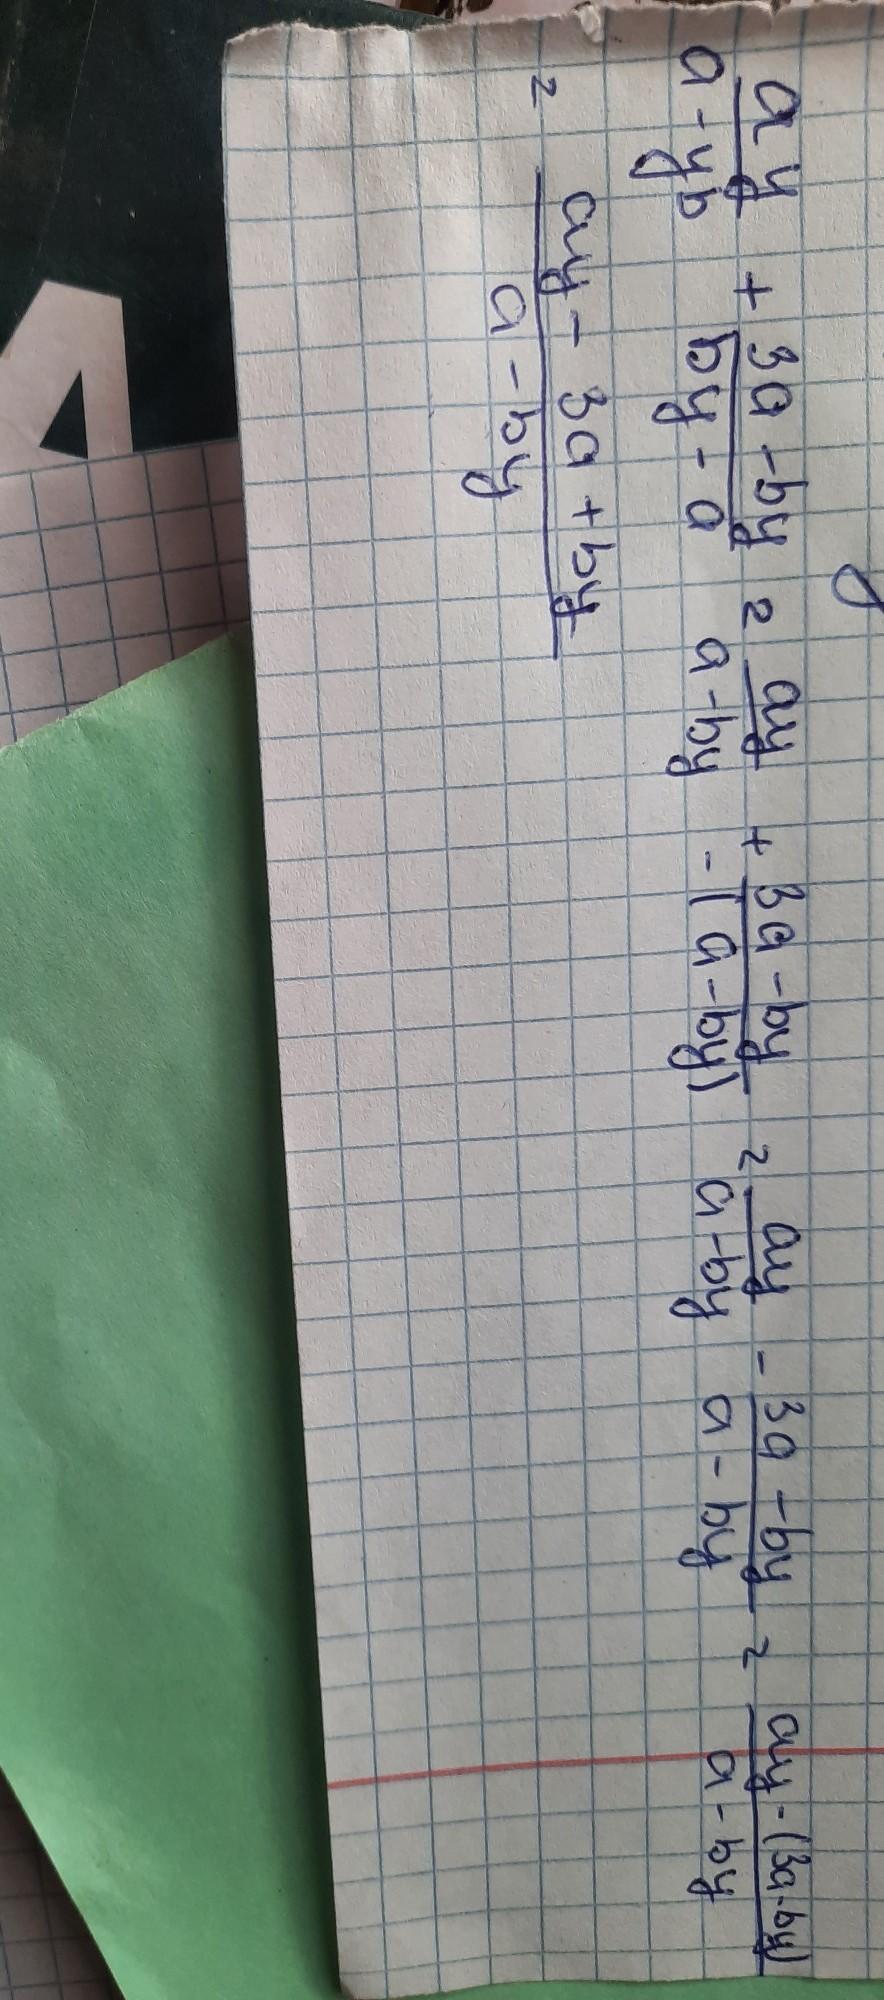 ay/(a - yb) + (3a - by)/(by - a) = ay/(a - by) + (3a - by)/(-(a - by)) = ay/(a - by) - (3a - by)/(a - by) = (ay - (3a - by))/(a - by)
= (ay - 3a + by)/(a - by)